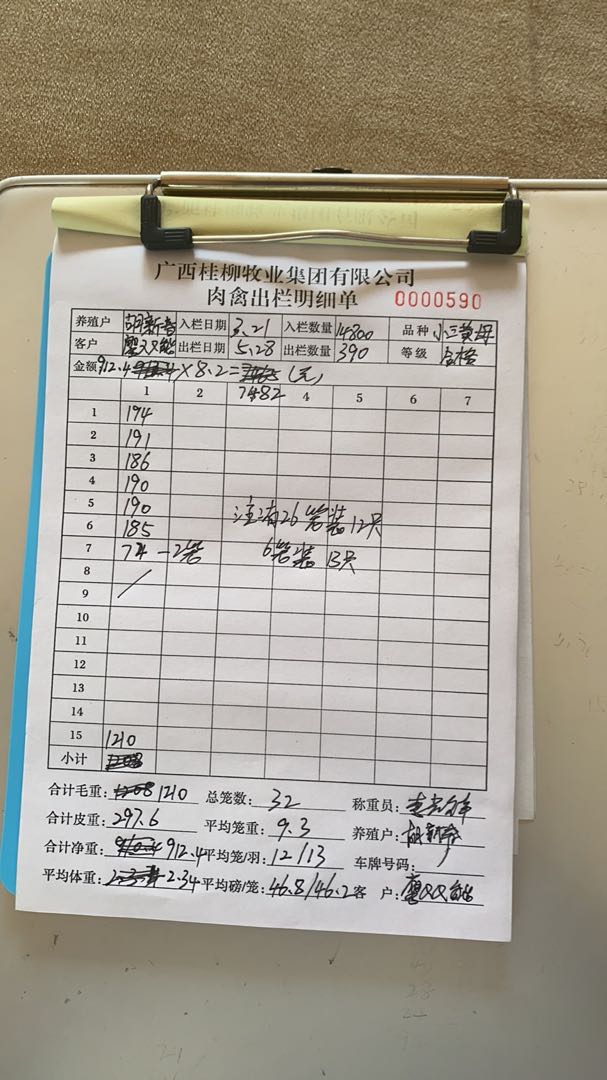 广西桂柳牧业集团有限公司
肉禽出栏明细单 0000590
养殖户 胡新 入栏日期 3.21 入栏数量 14800 品种 小三黄母
客户 出栏日期 5.28 出栏数量 390 等级 合格
金额 912.4 ×8.2= (元)
7482
1 2 4 5 6 7
1 194
2 191
3 186
4 190
5 190 注:有26笼装12只
6 185
7 74-2笼 6笼装13只
8
9
10
11
12
13
14
15 1210
小计
合计毛重: 1210 总笼数: 32 称重员:
合计皮重: 297.6 平均笼重: 9.3 养殖户: 胡新
合计净重: 912.4 平均笼/羽: 12/13 车牌号码:
平均体重: 2.34 平均磅/笼: 46.8/46.2 客 户: